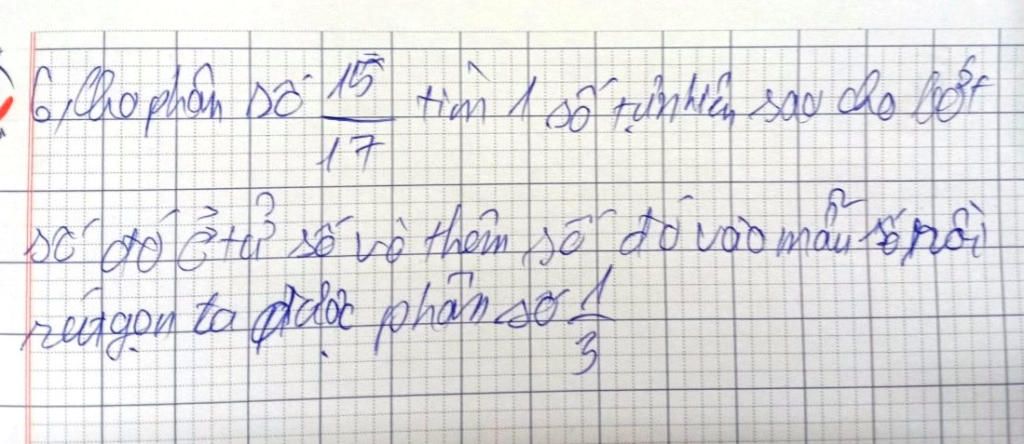 6, Cho phân số 15/17 tìm 1 số tự nhiên sao cho bớt
số đó ở tử số và thêm số đó vào mẫu số rồi
rút gọn ta được phân số 1/3